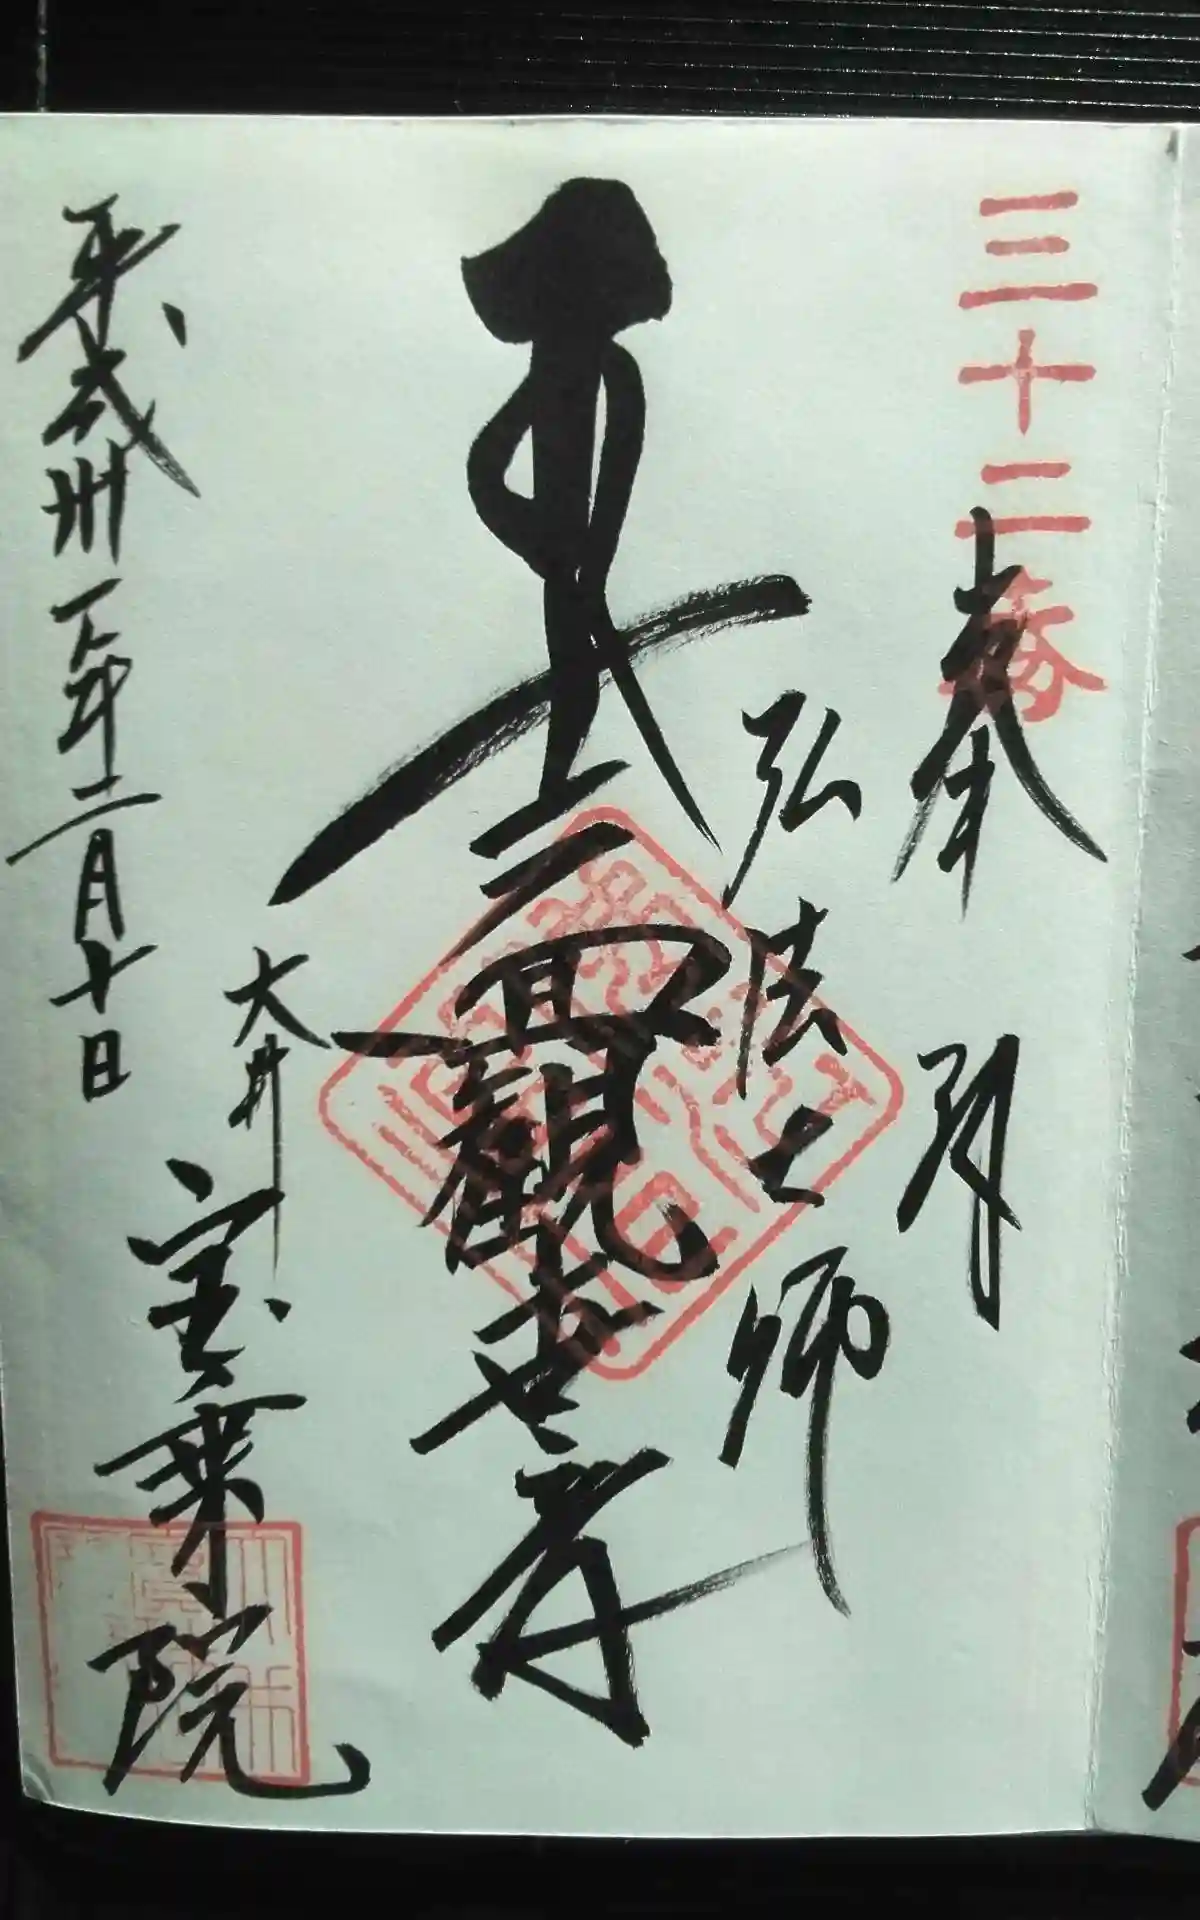 三十二番
奉拝
弘法大師
面觀世音
大井 宝乗院
平成卅一年二月十日